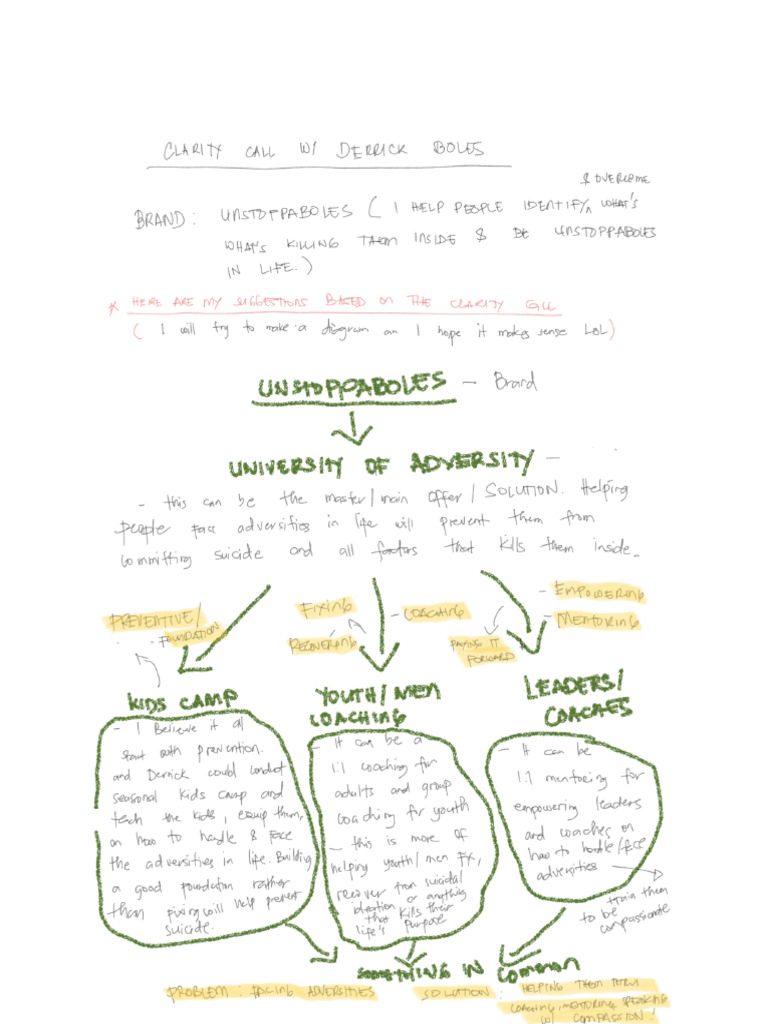 CLARITY CALL W/ DERRICK BOLES
& OVERCOME
BRAND: UNSTOPPABOLES ( I HELP PEOPLE IDENTIFY^ WHAT'S
WHAT'S KILLING THEM INSIDE & BE UNSTOPPABOLES
IN LIFE.)
* HERE ARE MY SUGGESTIONS BASED ON THE CLARITY CALL
( I will try to make a diagram an I hope it makes sense LOL)
UNSTOPPABOLES - Brand
UNIVERSITY OF ADVERSITY -
- this can be the master/main offer/SOLUTION. Helping
people face adversities in life will prevent them from
committing suicide and all factors that kills them inside.
PREVENTIVE/
- FOUNDATION
FIXING
RECOVERING
- COACHING
- EMPOWERING
- MENTORING
PAYING IT
FORWARD
KIDS CAMP
- I Believe it all
start with prevention.
and Derrick could conduct
seasonal kids camp and
teach the kids, equip them,
on how to handle & face
the adversities in life. Building
a good foundation rather
than fixing will help prevent
suicide.
YOUTH/MEN
COACHING
- It can be a
1:1 coaching for
adults and group
coaching for youth
- this is more of
helping youth/men fix,
recover from suicidal
ideation or anything
that kills their
life's purpose
LEADERS/
COACHES
- It can be
1:1 mentoring for
empowering leaders
and coaches on
how to handle/face
adversities
train them
to be
compassionate
SOMETHING IN Common
PROBLEM: FACING ADVERSITIES
SOLUTION: HELPING THEM THRU
COACHING, MENTORING, SPEAKING
W/ COMPASSION!